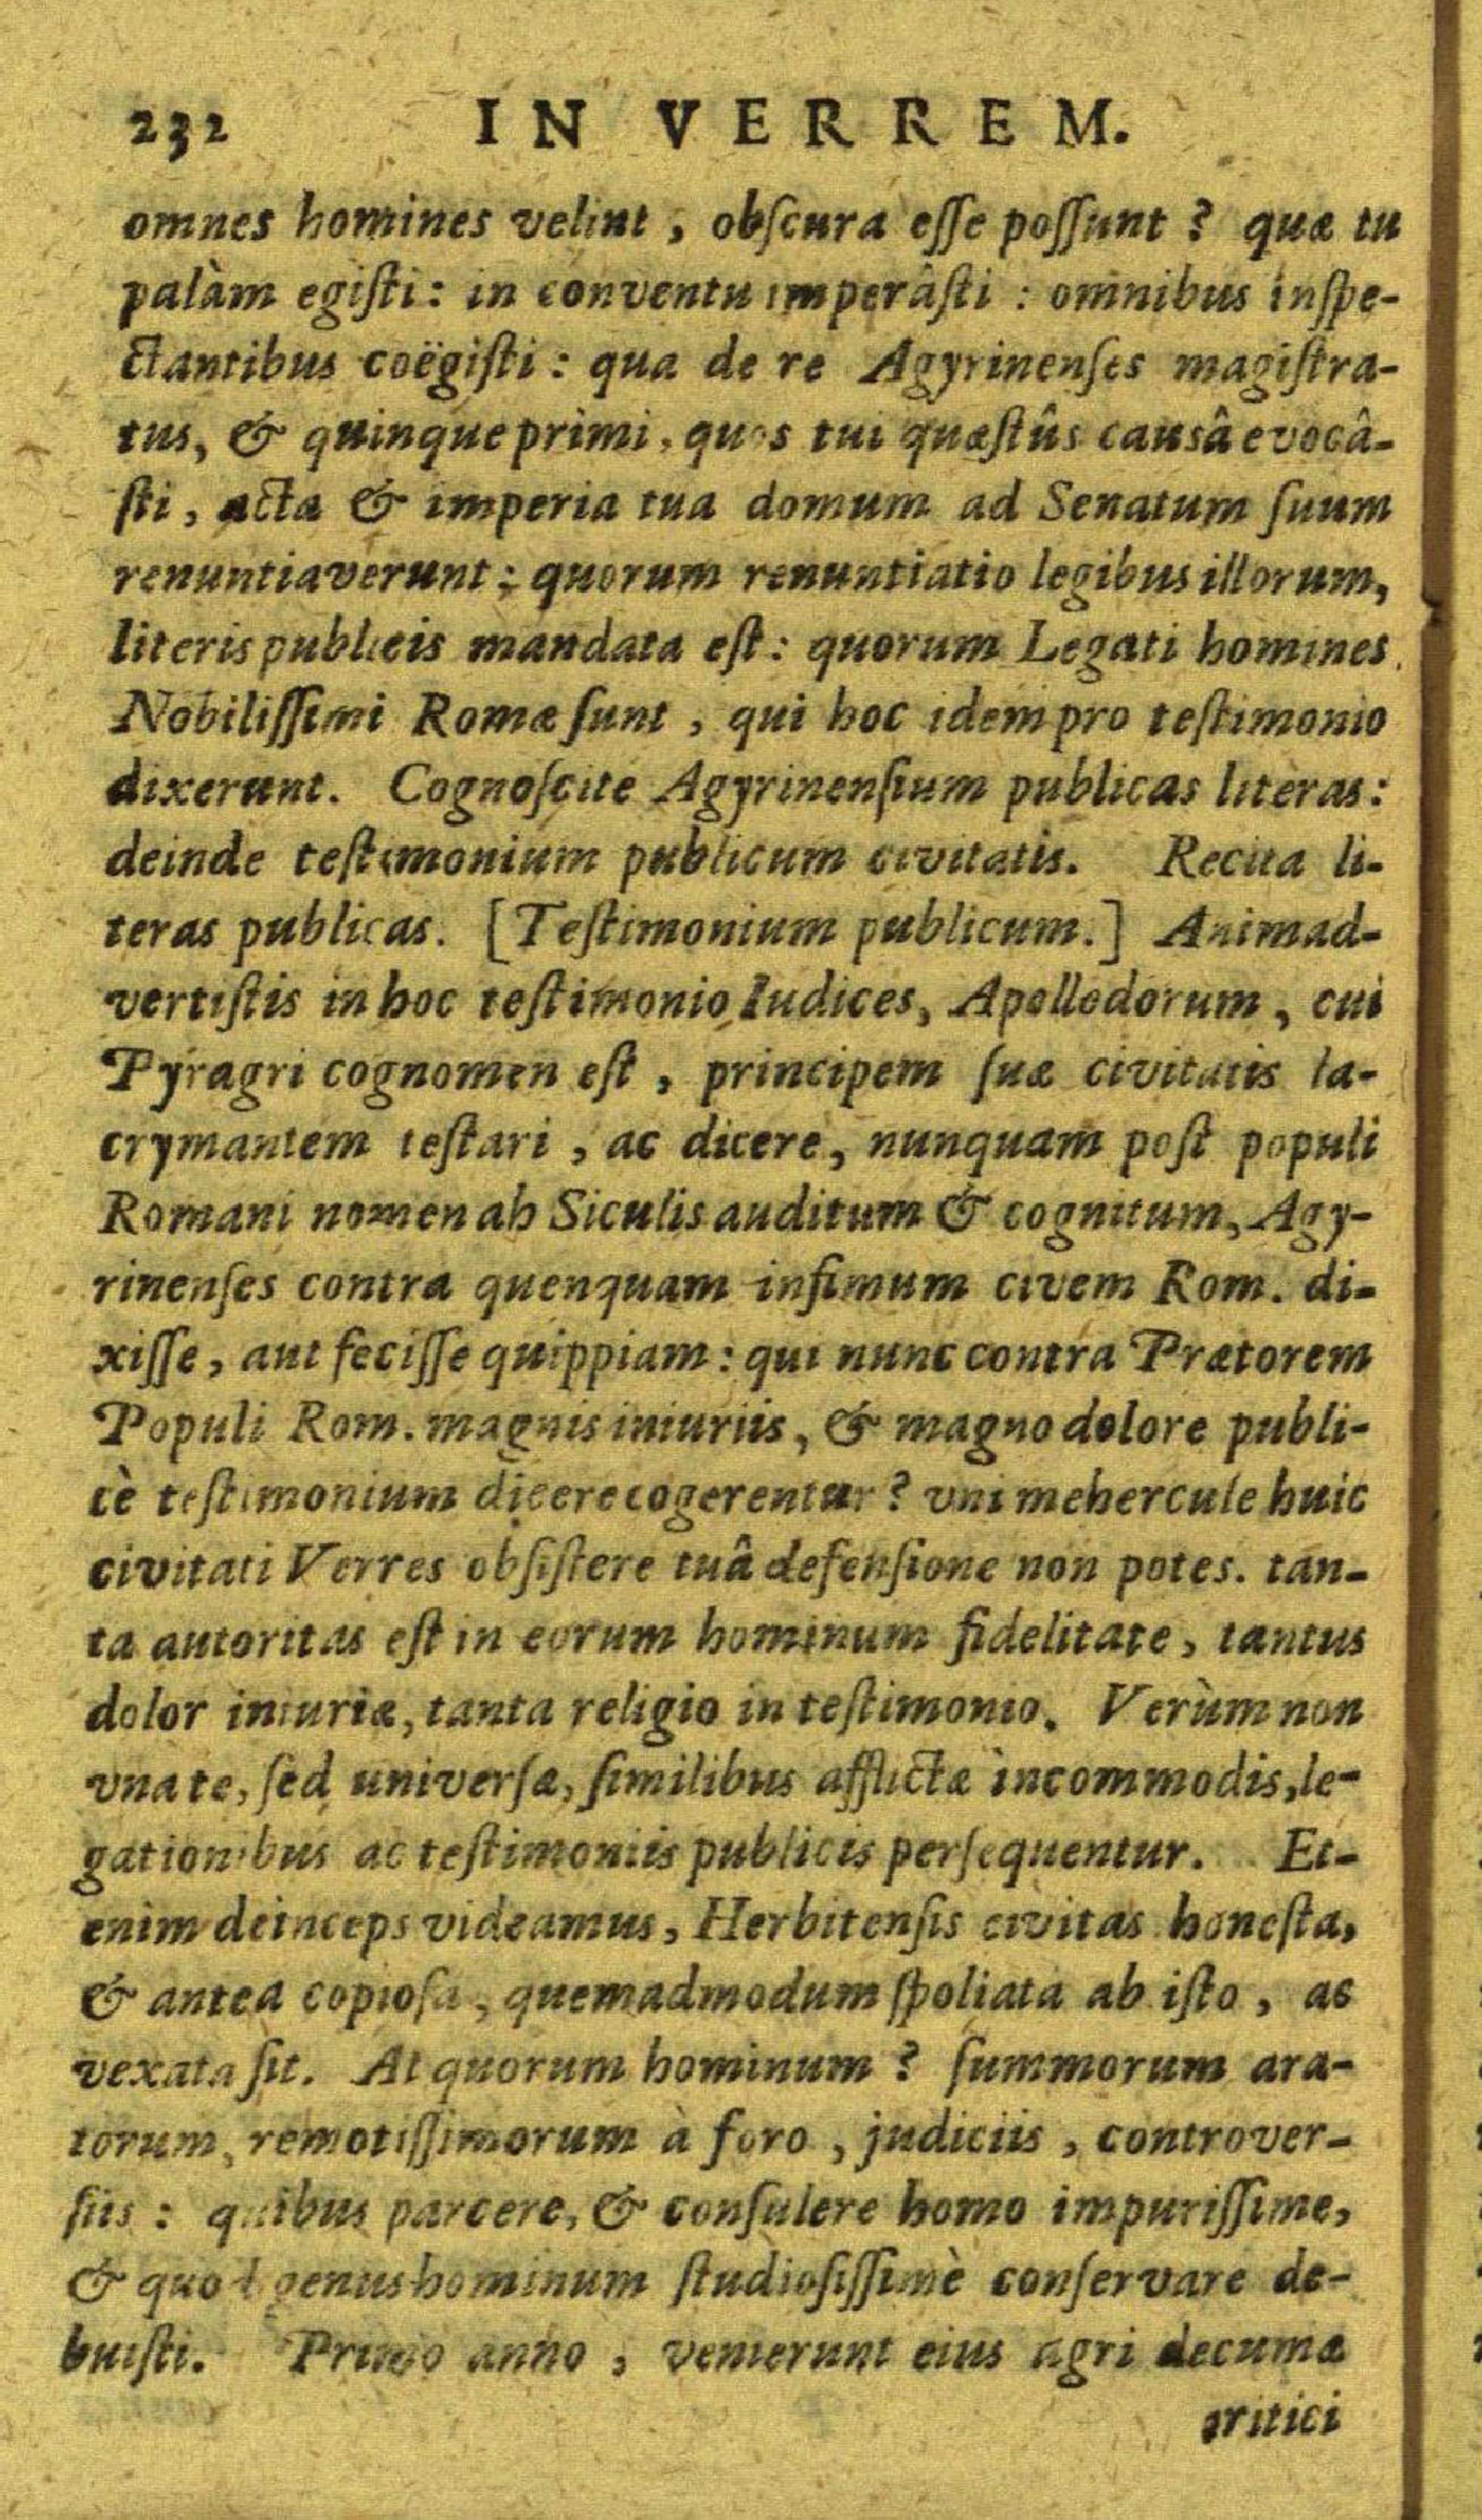 232 IN VERREM.
omnes homines velint, obſcura eſſe poſſunt? quæ tu
palàm egiſti: in conventu imperâſti: omnibus inſpe-
ctantibus coëgiſti: qua de re Agyrinenſes magiſtra-
tus, & quinque primi, quos tui quæſtûs causâ evocâ-
ſti, acta & imperia tua domum ad Senatum ſuum
renuntiaverunt: quorum renuntiatio legibus illorum,
literis publicis mandata eſt: quorum Legati homines
Nobiliſſimi Romæ ſunt, qui hoc idem pro teſtimonio
dixerunt. Cognoſcite Agyrinenſium publicas literas:
deinde teſtimonium publicum civitatis. Recita li-
teras publicas. [Teſtimonium publicum.] Animad-
vertiſtis in hoc teſtimonio Iudices, Apollodorum, cui
Pyragri cognomen eſt, principem ſuæ civitatis la-
crymantem teſtari, ac dicere, nunquam poſt populi
Romani nomen ab Siculis auditum & cognitum, Agy-
rinenſes contra quenquam infimum civem Rom. di-
xiſſe, aut feciſſe quippiam: qui nunc contra Prætorem
Populi Rom. magnis iniuriis, & magno dolore publi-
cè teſtimonium dicere cogerentur? vni mehercule huic
civitati Verres obſiſtere tuâ defenſione non potes. tan-
ta autoritas eſt in eorum hominum fidelitate, tantus
dolor iniuriæ, tanta religio in teſtimonio. Verùm non
vna te, ſed universæ, ſimilibus afflictæ incommodis, le-
gationibus ac teſtimoniis publicis perſequentur. Et-
enim deinceps videamus, Herbitenſis civitas honeſta,
& antea copioſa, quemadmodum ſpoliata ab iſto, ac
vexata ſit. At quorum hominum? ſummorum ara-
torum, remotiſſimorum à foro, judiciis, controver-
ſiis: quibus parcere, & conſulere homo impuriſſime,
& quod genus hominum ſtudioſiſſimè conſervare de-
buiſti. Primo anno, venierunt eius agri decumæ
tritici